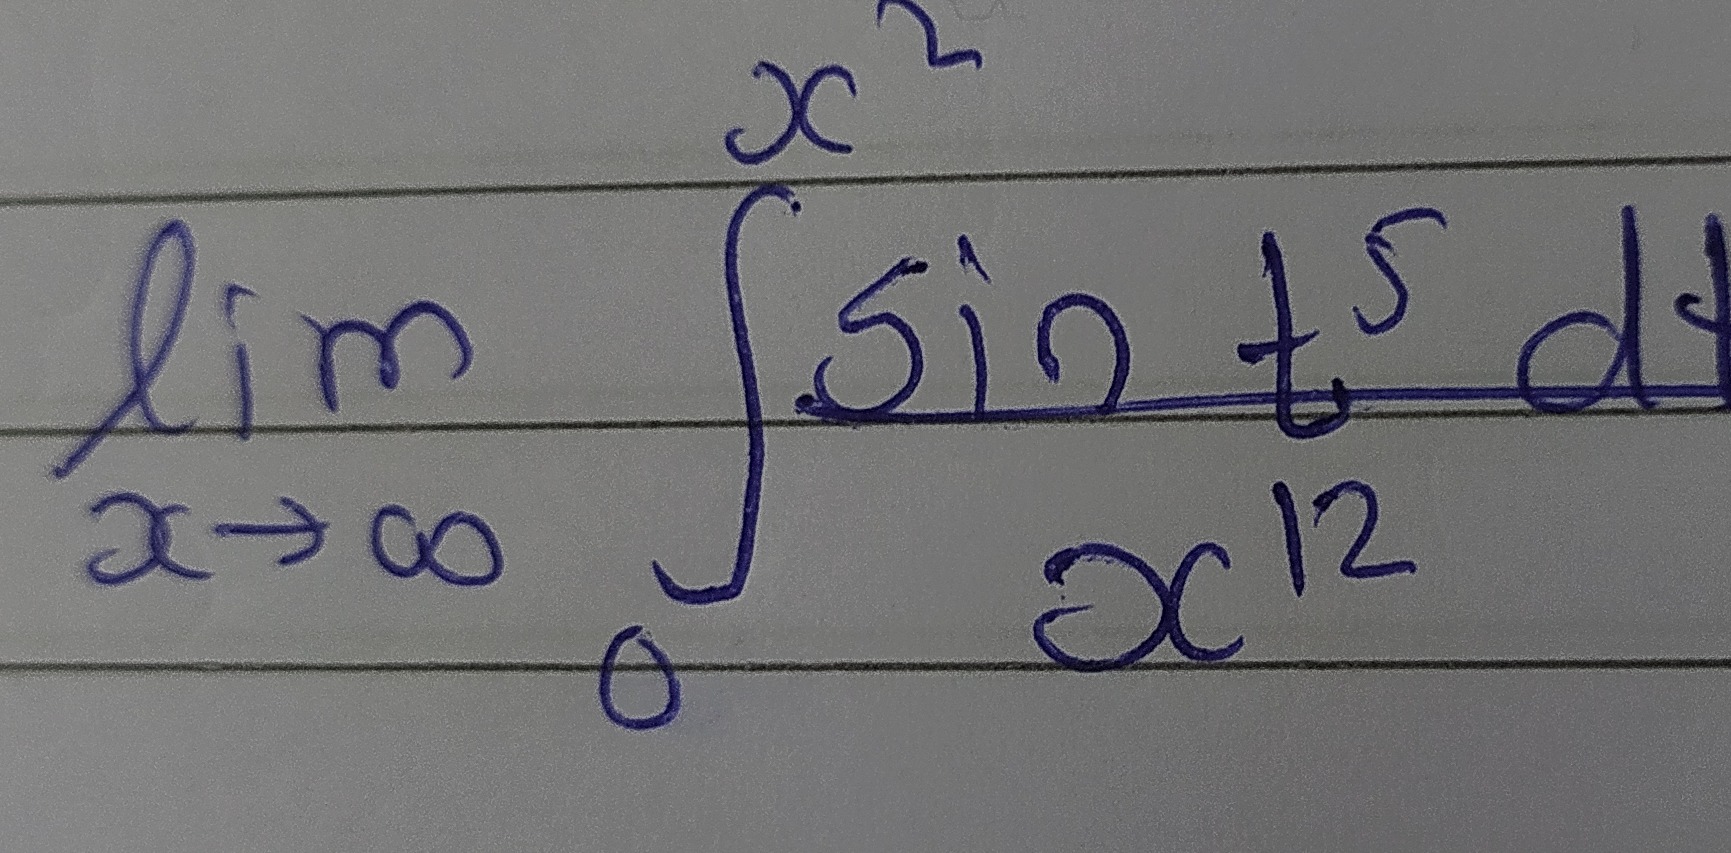 lim x→∞ ∫₀^{x²} \frac{sin t⁵ dt}{x¹²}